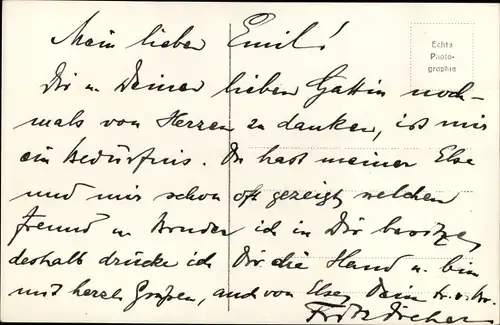 Mein lieber Emil!
Echte
Photo-
graphie
Dir u. Deiner lieben Gattin noch-
mals von Herzen zu danken, ist mir
ein Bedürfnis. Du hast meiner Else
und mir schon oft gezeigt welchen
Freund u. Bruder ich in Dir besitze,
deshalb drücke ich Dir die Hand u. bin
mit herzl. Grüßen, auch von Else, Dein tr. u. Br.
Fritz